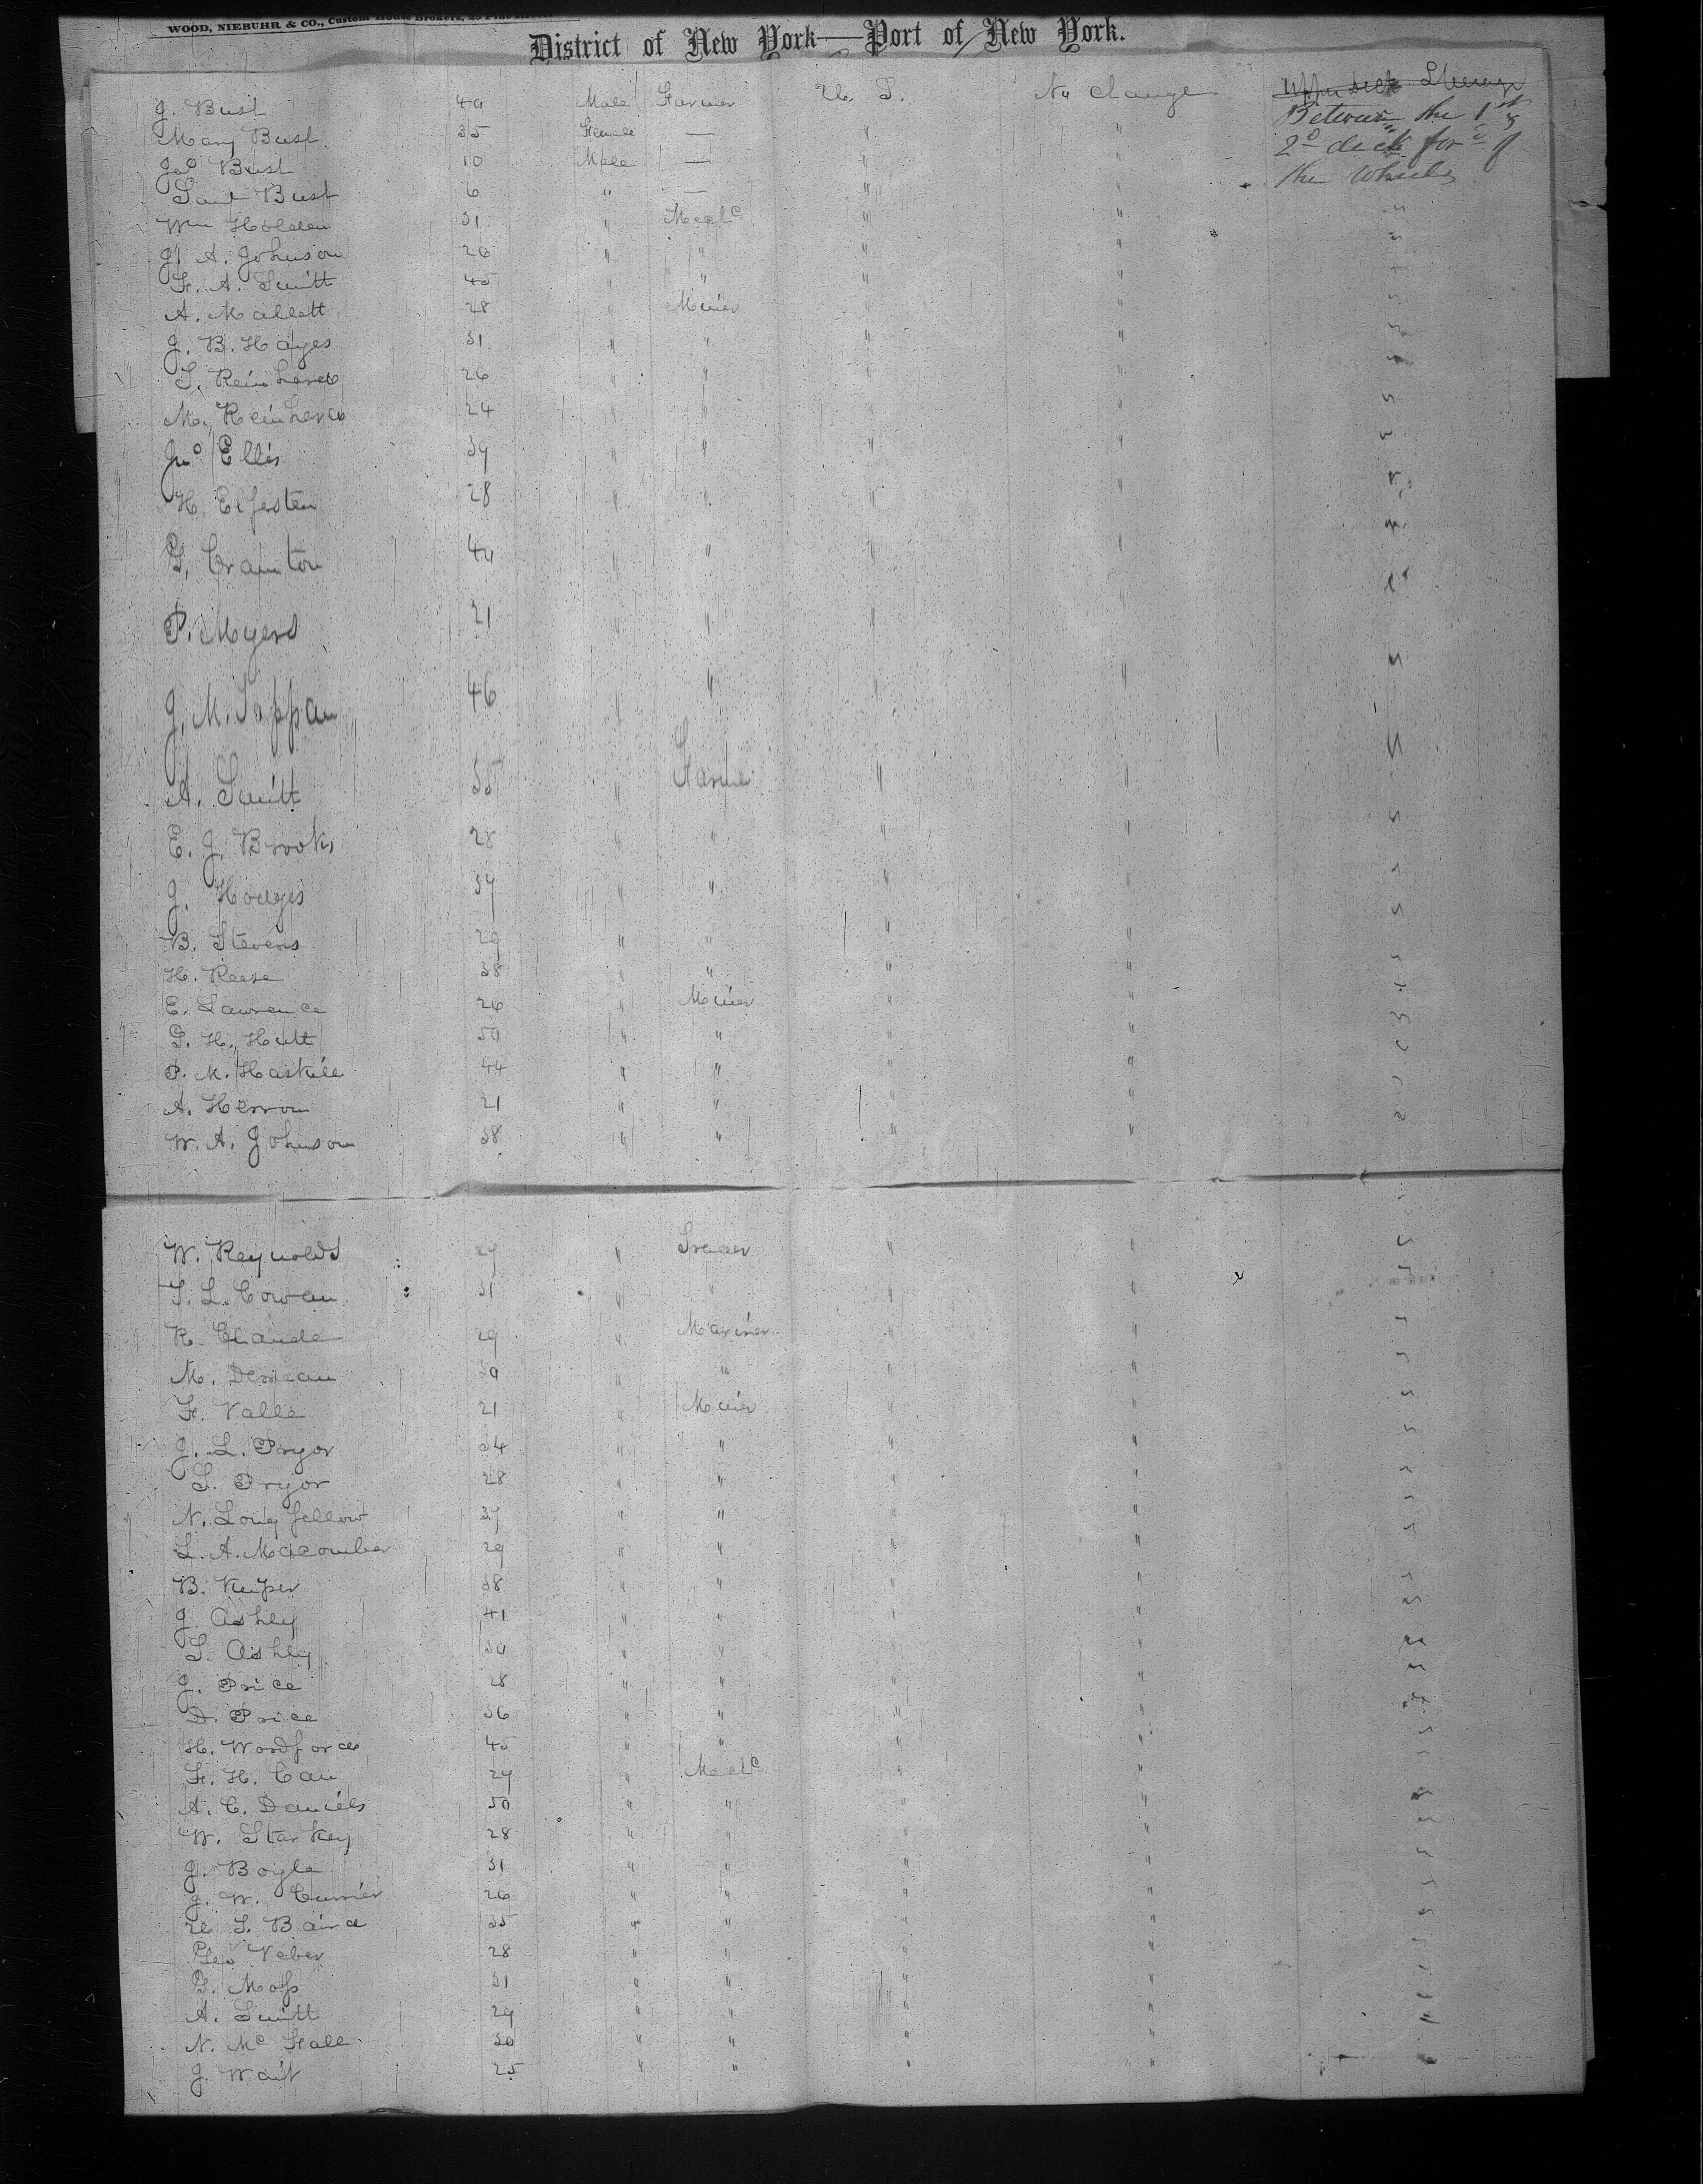 WOOD, NIEBUHR & CO., Custom House Brokers,
District of New York—Port of New York.
J. Bust 40 Male Farmer U. S. No change Upper deck Steerage
Mary Bust 35 Female — " " Between the 1st &
Jno Bust 10 Male — " " 2d deck for'd of
Saml Bust 6 " — " " the Wheels
Wm Holden 31 " Mechc " "
J. A. Johnson 26 " " " "
F. A. Smitt 45 " " " "
A. Mallett 28 " Miner " "
J. B. Hayes 31 " " " "
S. Reinhard 26 " " " "
M. Reinhard 24 " " " "
Jno Ellis 39 " " " "
H. Elfestein 28 " " " "
G. Cramton 40 " " " "
P. Myers 21 " " " "
J. M. Tappan 46 " " " "
A. Smitt 35 " Farmer " "
E. J. Brooks 28 " " " "
J. Hodges 39 " " " "
B. Stevens 29 " " " "
H. Reese 38 " " " "
E. Lawrence 26 " Miner " "
G. H. Hutt 50 " " " "
P. M. Haskell 44 " " " "
A. Herron 21 " " " "
W. A. Johnson 38 " " " "
W. Reynolds 29 " Trader " "
T. L. Cowan 31 " " " "
R. Claude 29 " Mariner " "
M. 30 " " " "
F. Valle 21 " Miner " "
J. L. Pryor 34 " " " "
S. Pryor 28 " " " "
N. Longfellow 37 " " " "
L. A. Macomber 29 " " " "
B. Keiper 38 " " " "
J. Ashley 41 " " " "
S. Ashley 30 " " " "
J. Price 28 " " " "
D. Price 36 " " " "
H. Woodford 45 " " " "
F. H. Cau 29 " Mechc " "
A. C. Daniels 50 " " " "
W. Starkey 28 " " " "
J. Boyle 31 " " " "
J. W. Currier 26 " " " "
U. S. Baird 35 " " " "
Geo Veber 28 " " " "
G. Moss 31 " " " "
A. Smitt 29 " " " "
N. Mc Hall 30 " " " "
J. Wait 25 " " " "